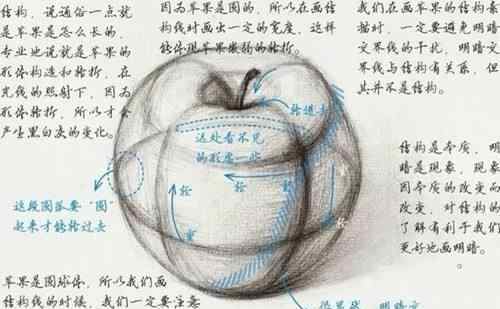 结构，说通俗一点就
是苹果是怎么长的，
专业地说就是苹果的
形体构造和转折，在
光线的照射下，因为
形体转折，所以才会
产生黑白灰的变化。
因为苹果是圆的，所以在画结
构线时画出一定的宽度，这样
能体现苹果微妙的转折。
我们在画苹果的结构素
描时，一定要避免明暗
交界线的干扰，明暗交
界线与结构有关系，但
其并不是结构。
转进去
这处看不见
的形虚一些
轻
轻
轻
重
轻
这段圆弧要“圆”
起来才能转过去
结构是本质，明
暗是现象，现象
因本质的改变而
改变，对结构的
了解有利于我们
更好地画明暗。
苹果是圆球体，所以我们画
结构线的时候，我们一定要注意